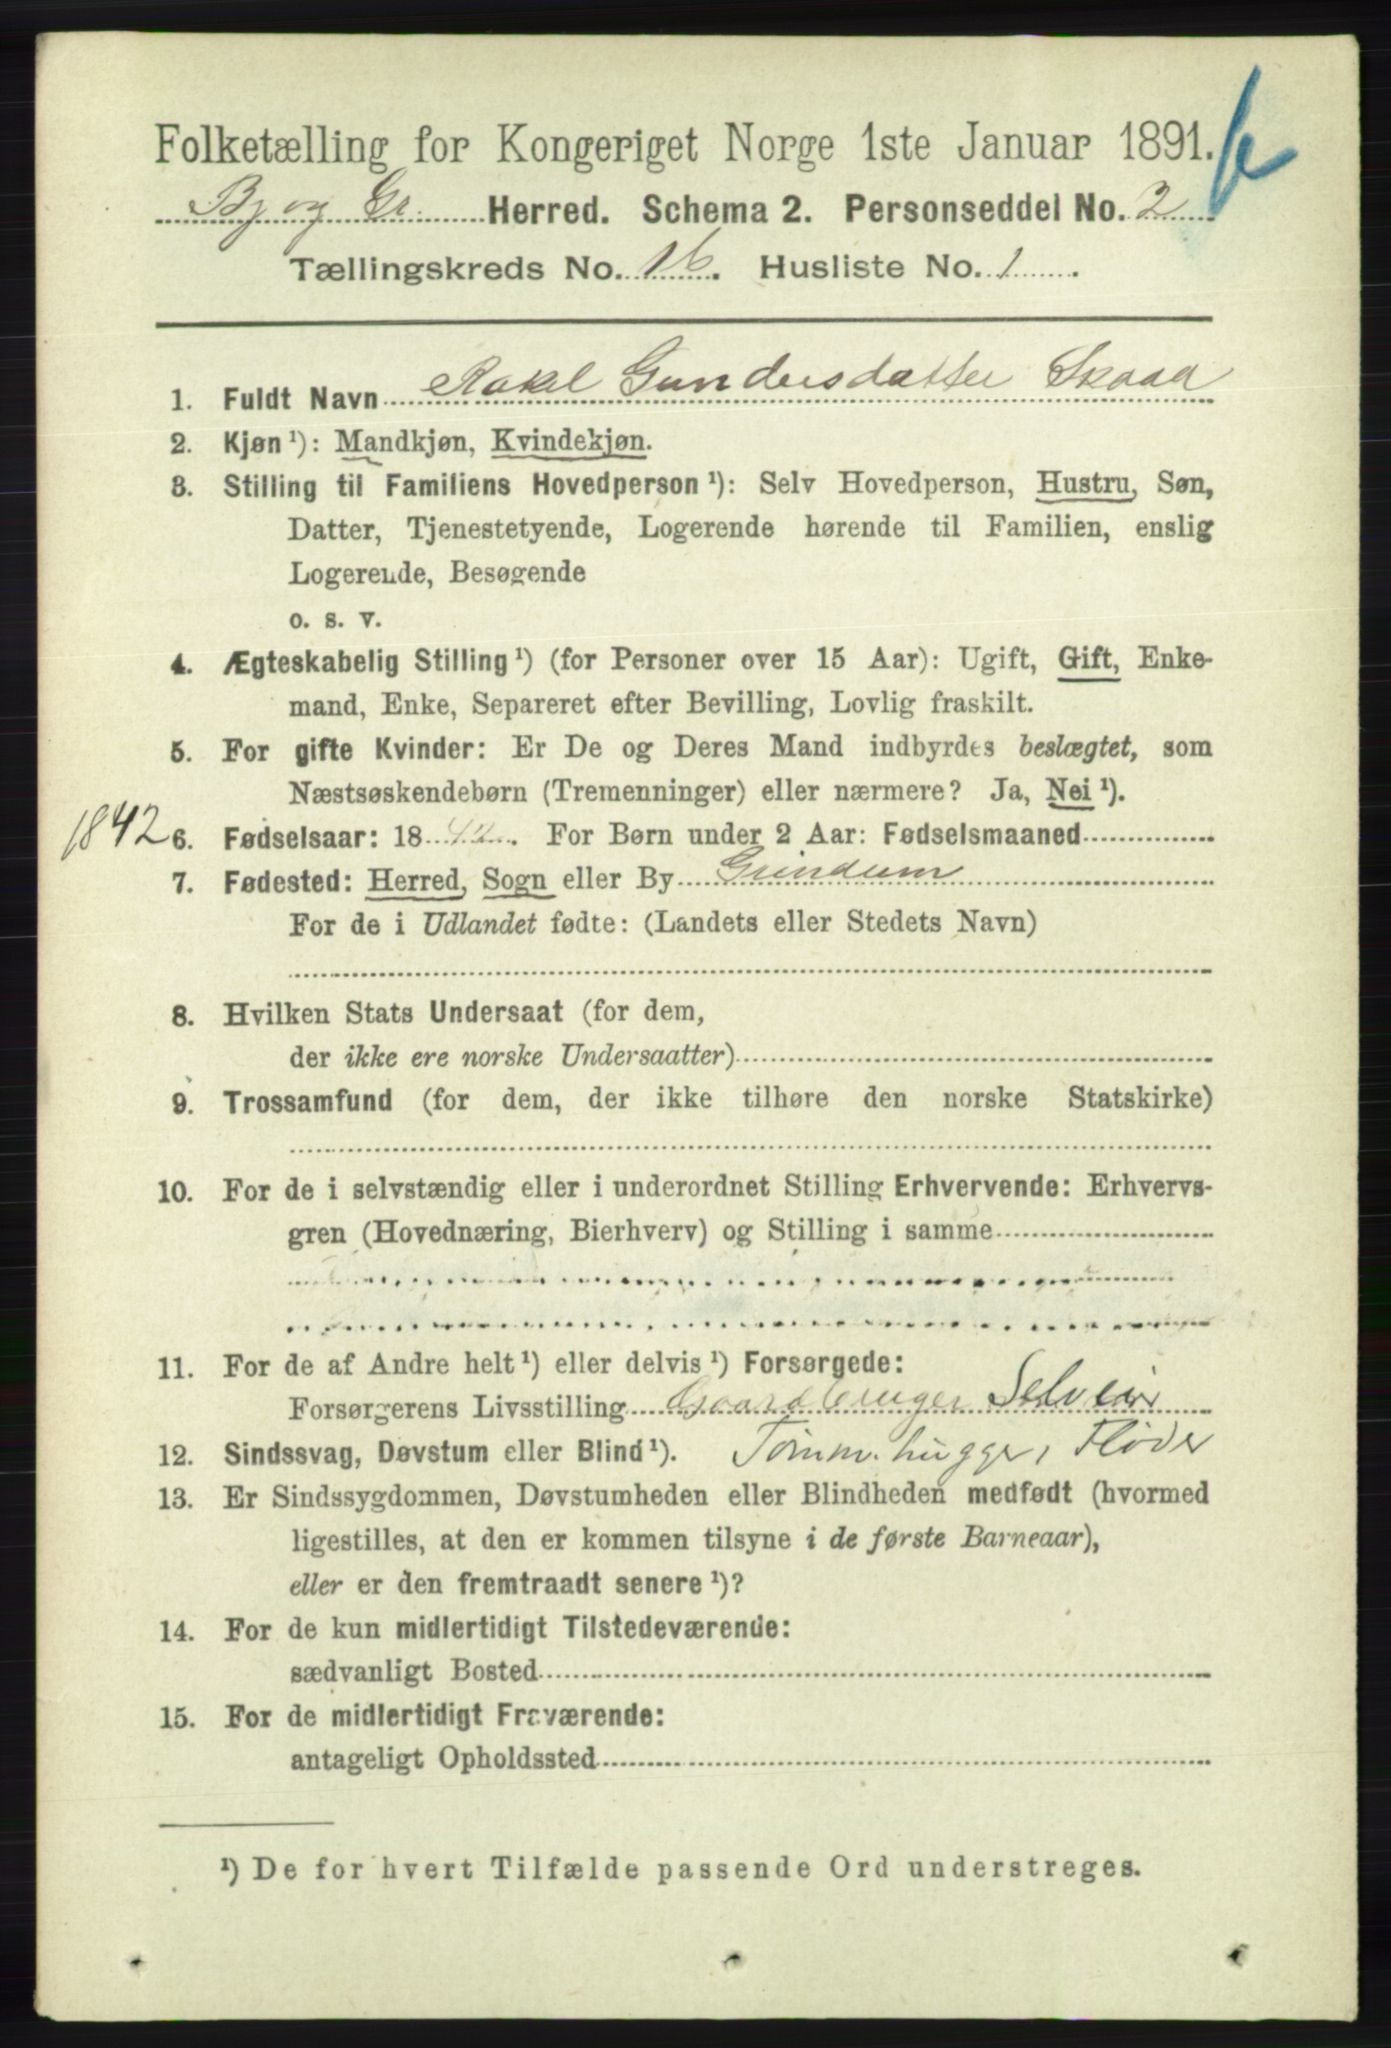 Folketælling for Kongeriget Norge 1ste Januar 1891.
By og Gr. Herred. Schema 2. Personseddel No. 2
Tællingskreds No. 16. Husliste No. 1.
1. Fuldt Navn Rakel Gundersdatter Skaaa
2. Kjøn ¹): Mandkjøn, Kvindekjøn.
3. Stilling til Familiens Hovedperson ¹): Selv Hovedperson, Hustru, Søn,
Datter, Tjenestetyende, Logerende hørende til Familien, enslig
Logerende, Besøgende
o. s. v.
4. Ægteskabelig Stilling ¹) (for Personer over 15 Aar): Ugift, Gift, Enke-
mand, Enke, Separeret efter Bevilling, Lovlig fraskilt.
5. For gifte Kvinder: Er De og Deres Mand indbyrdes beslægtet, som
Næstsøskendebørn (Tremenninger) eller nærmere? Ja, Nei ¹).
1842 6. Fødselsaar: 18 42. For Børn under 2 Aar: Fødselsmaaned
7. Fødested: Herred, Sogn eller By Grindum
For de i Udlandet fødte: (Landets eller Stedets Navn)
8. Hvilken Stats Undersaat (for dem,
der ikke ere norske Undersaatter)
9. Trossamfund (for dem, der ikke tilhøre den norske Statskirke)
10. For de i selvstændig eller i underordnet Stilling Erhvervende: Erhvervs-
gren (Hovednæring, Bierhverv) og Stilling i samme
11. For de af Andre helt ¹) eller delvis ¹) Forsørgede:
Forsørgerens Livsstilling Gaardbruger Selveier
12. Sindssvag, Døvstum eller Blind ¹). Tømm.hugger, Fløder
13. Er Sindssygdommen, Døvstumheden eller Blindheden medfødt (hvormed
ligestilles, at den er kommen tilsyne i de første Barneaar),
eller er den fremtraadt senere ¹)?
14. For de kun midlertidigt Tilstedeværende:
sædvanligt Bosted
15. For de midlertidigt Fraværende:
antageligt Opholdssted
¹) De for hvert Tilfælde passende Ord understreges.